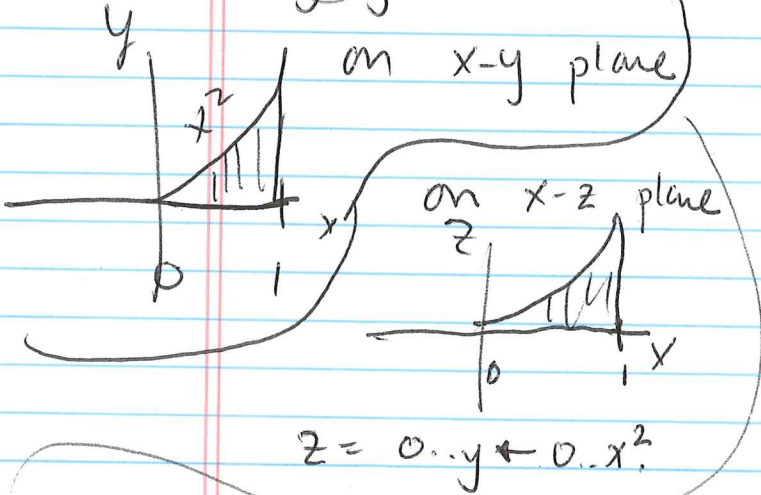 y
on x-y plane
x²
x
0 1
on x-z plane
z
0 1 x
z = 0..y ← 0..x².